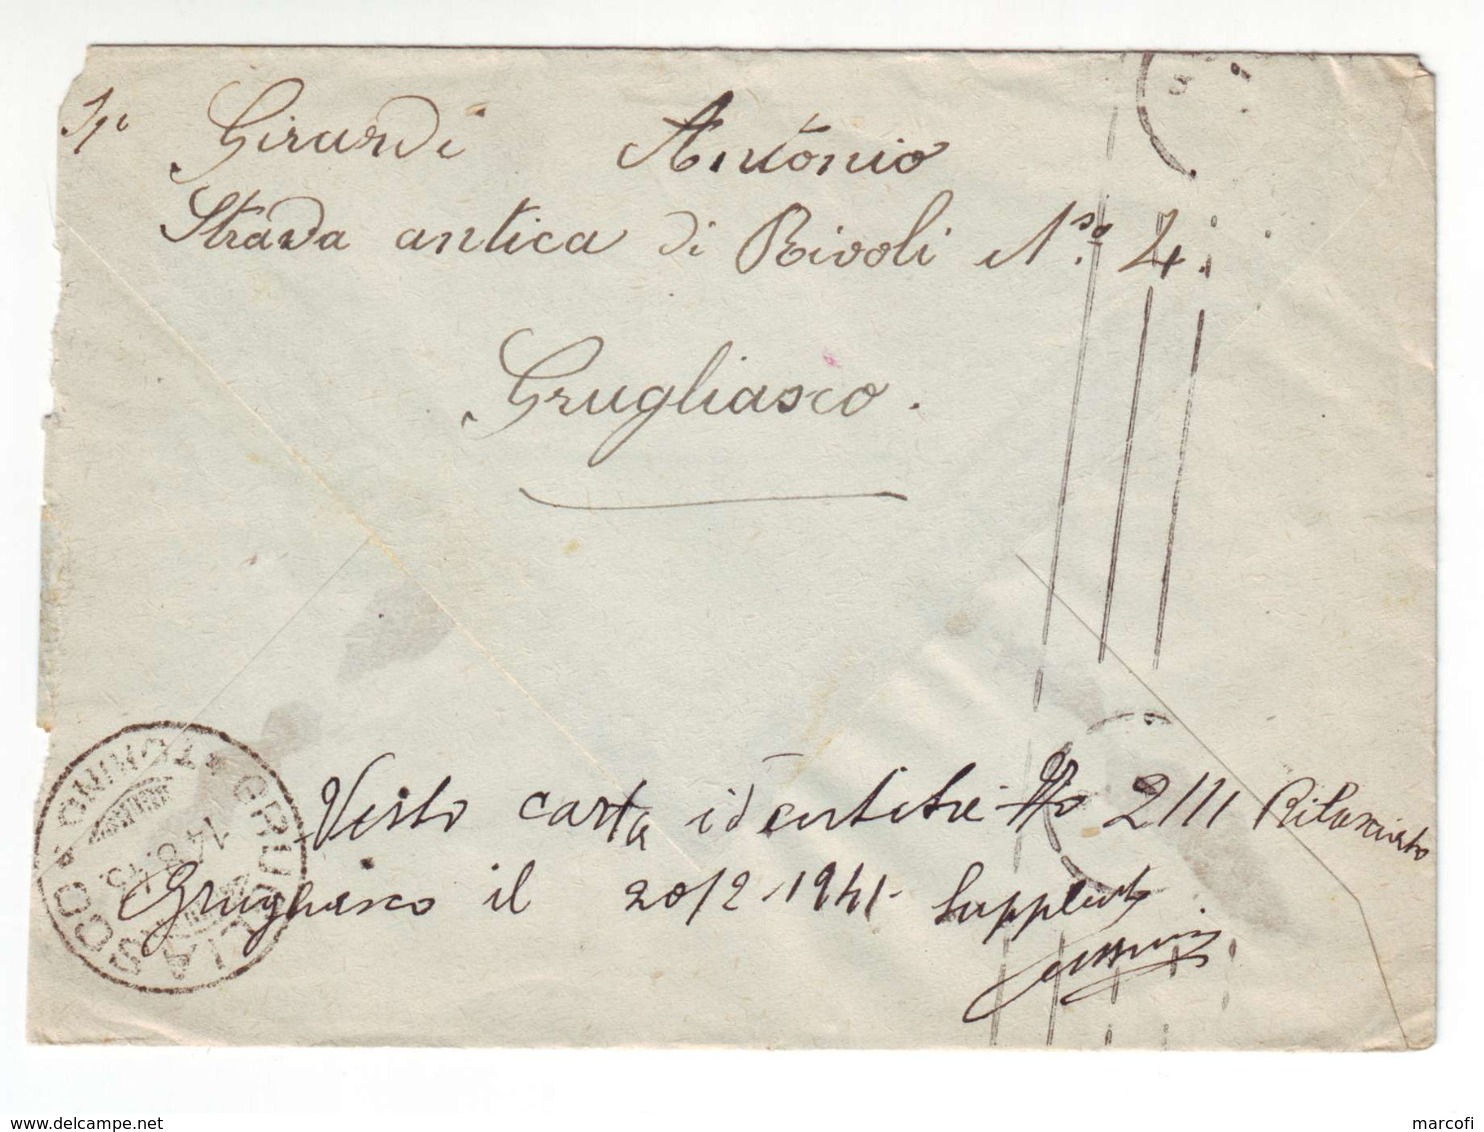 Girardi Antonio
Strada antica di Rivoli N.ro 4.
Grugliasco.
GRUGLIASCO * TORINO *
14.8.45
Visto carta identità No 2111 Rilasciato
Grugliasco il 20/2-1941- Supplente
marcofi